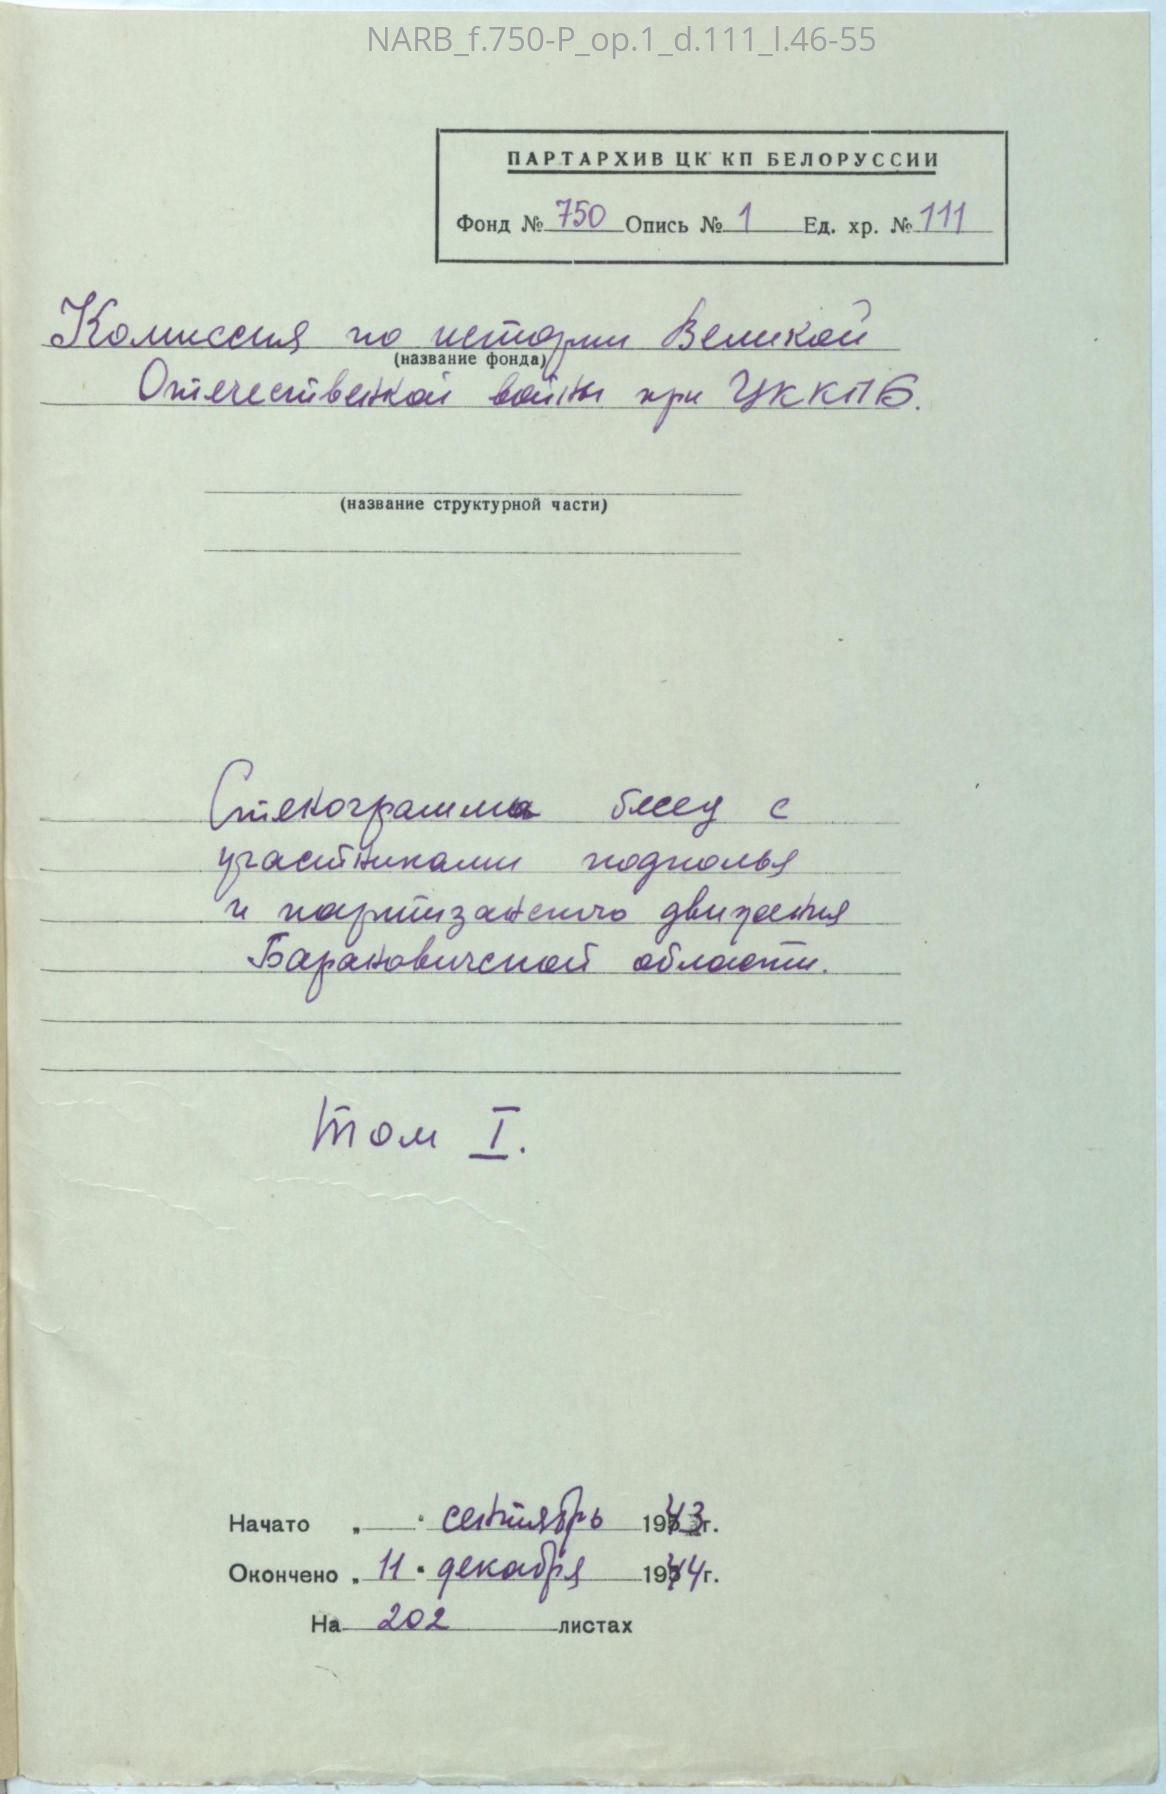 NARB_f.750-P_op.1_d.111_l.46-55
ПАРТАРХИВ ЦК КП БЕЛОРУССИИ
Фонд № 750 Опись № 1 Ед. хр. № 111
Комиссия по истории Великой
(название фонда)
Отечественной войны при ЦК КПБ.
(название структурной части)
Стенограмма бесед с
участниками подполья
и партизанского движения
Барановичской области.
Том I.
Начато „ " сентябрь 1943 г.
Окончено „ 11 " декабря 1944 г.
На 202 листах